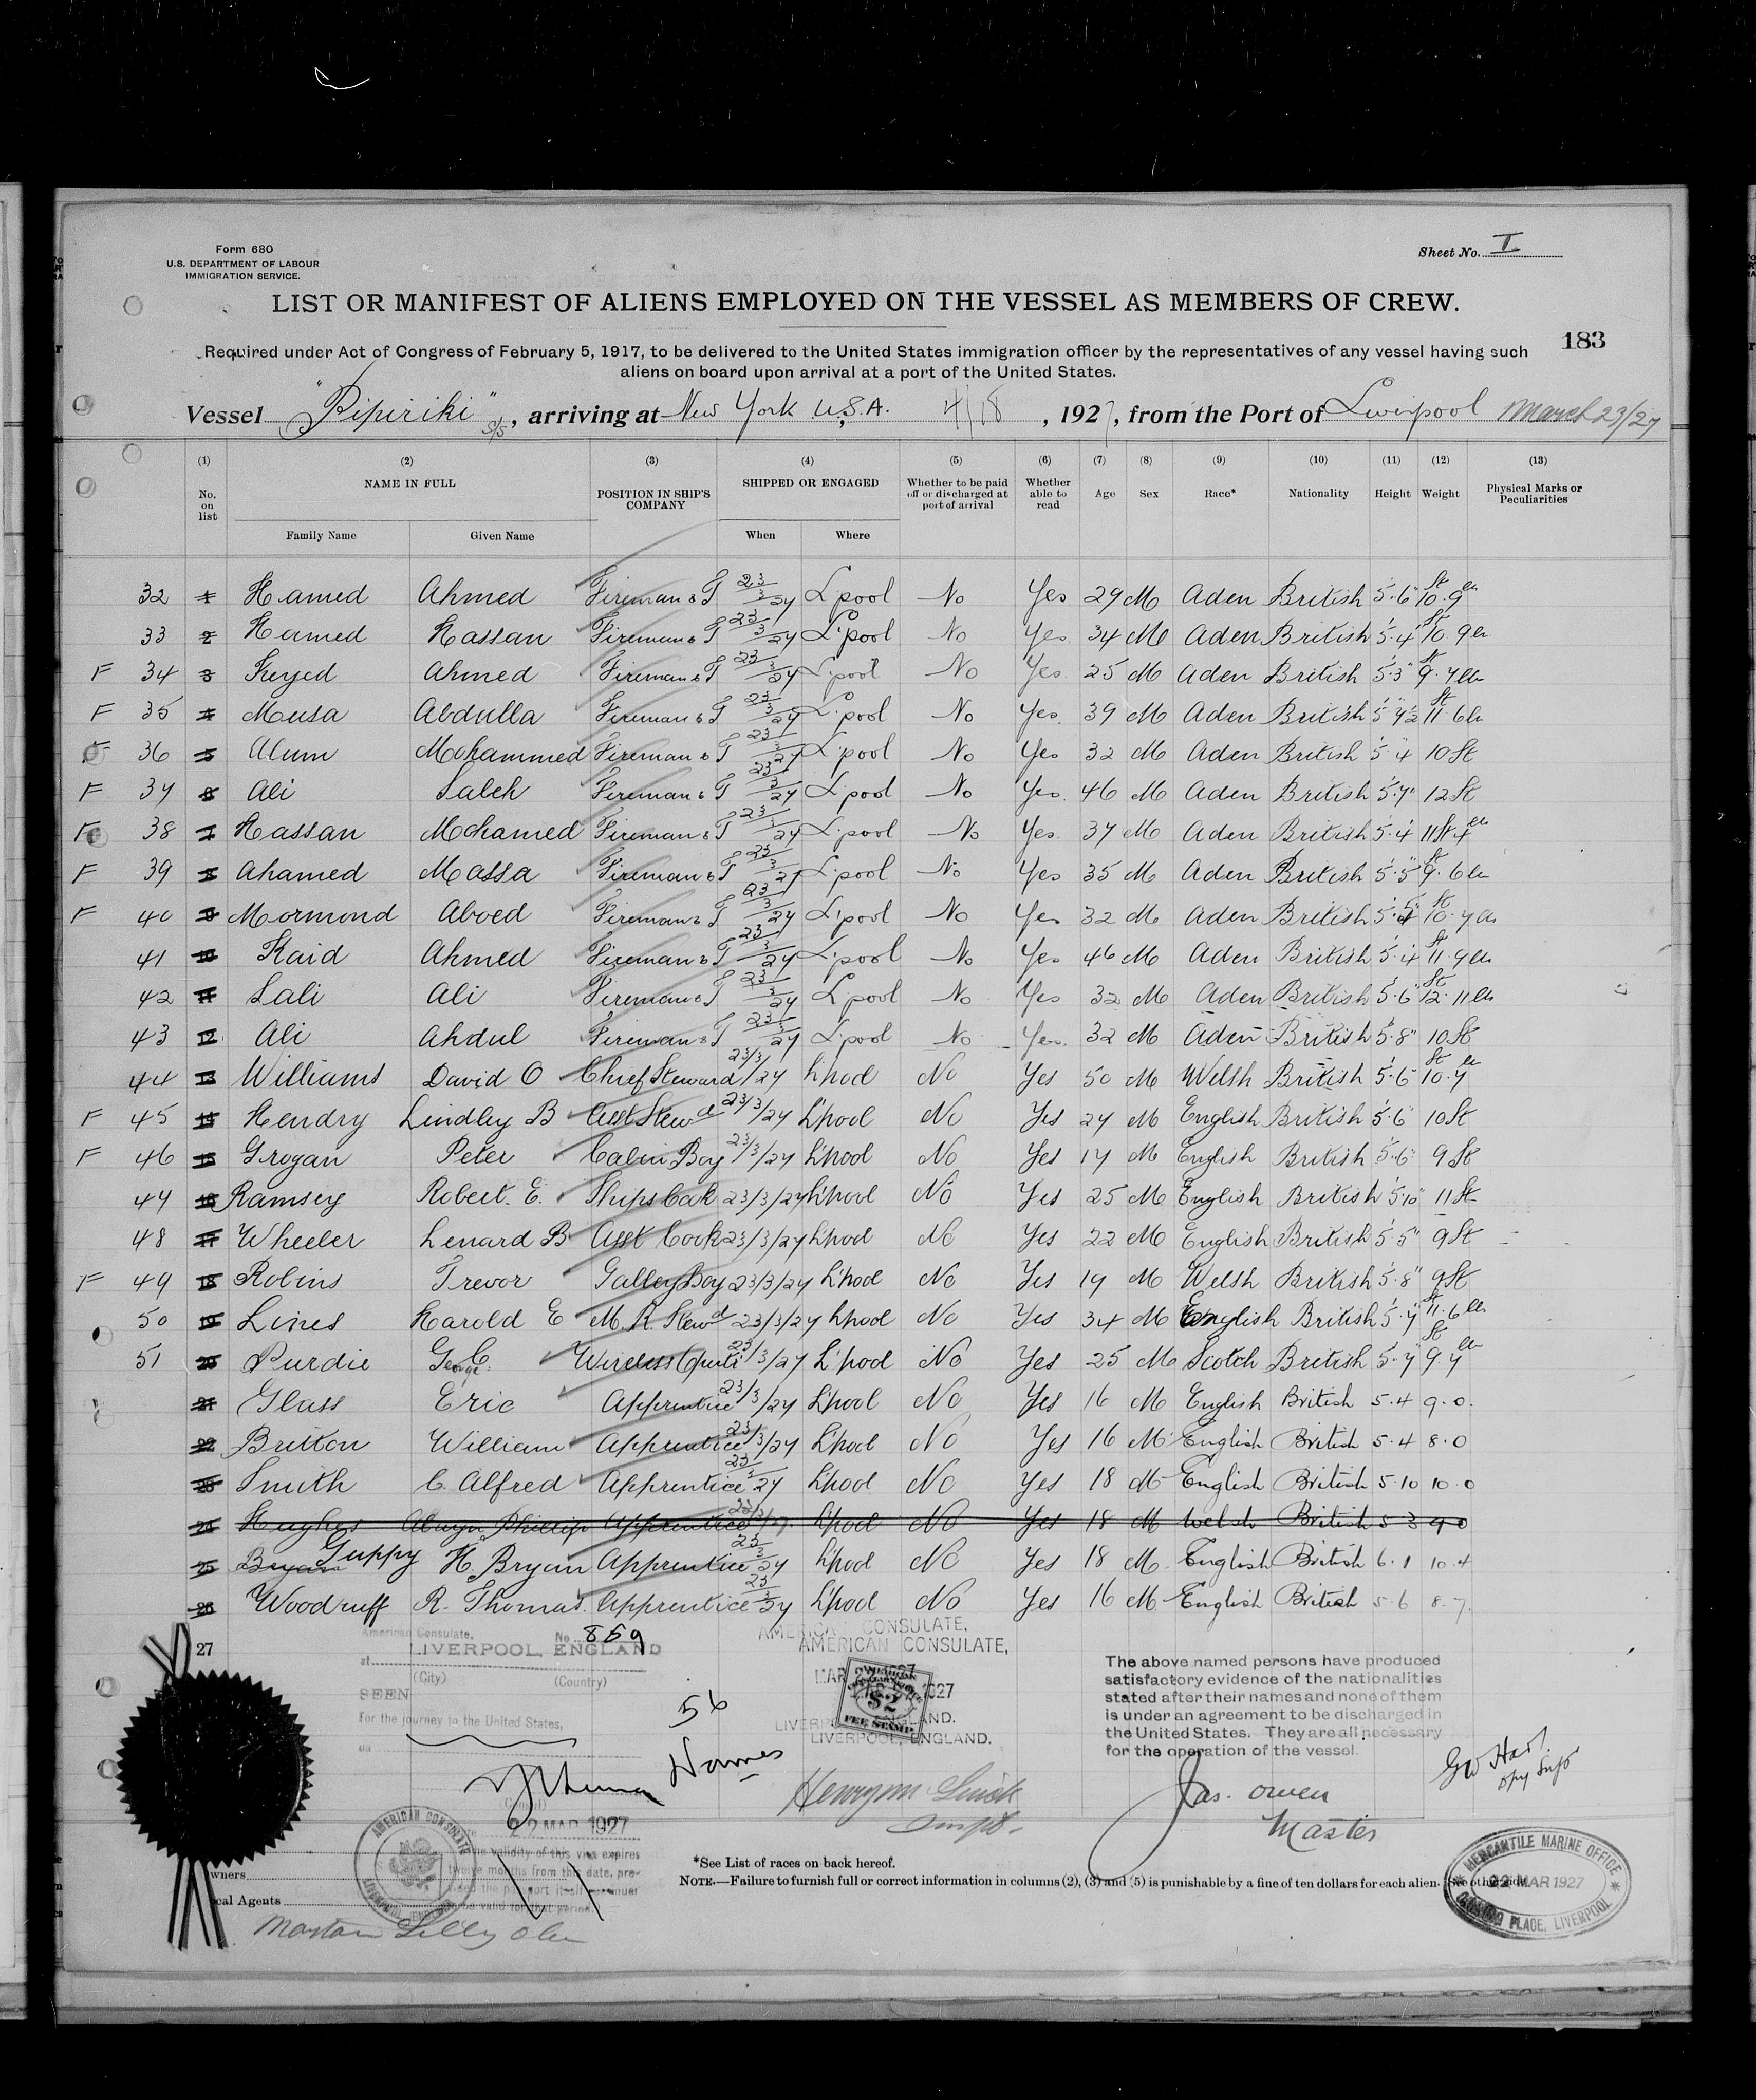 Form 680
U.S. DEPARTMENT OF LABOUR
IMMIGRATION SERVICE.
Sheet No. I
LIST OR MANIFEST OF ALIENS EMPLOYED ON THE VESSEL AS MEMBERS OF CREW.
183
Required under Act of Congress of February 5, 1917, to be delivered to the United States immigration officer by the representatives of any vessel having such
aliens on board upon arrival at a port of the United States.
Vessel "Pipiriki" s/s, arriving at New York U.S.A. 4/18, 1927, from the Port of Liverpool March 23/27
(1) (2) (3) (4) (5) (6) (7) (8) (9) (10) (11) (12) (13)
No. on list NAME IN FULL Family Name Given Name POSITION IN SHIP'S COMPANY SHIPPED OR ENGAGED When Where Whether to be paid off or discharged at port of arrival Whether able to read Age Sex Race* Nationality Height Weight Physical Marks or Peculiarities
32 1 Hamed Ahmed Fireman & T 23/3/27 L'pool No Yes 29 M Aden British 5'.6" 10st.9lb
33 2 Hamed Hassan Fireman & T 23/3/27 L'pool No Yes. 34 M Aden British 5'.4" 10st.9lb
F 34 3 Seyed Ahmed Fireman & T 23/3/27 L'pool No Yes. 25 M Aden British 5'.3" 9st.7lb
F 35 4 Musa Abdulla Fireman & T 23/3/27 L'pool No Yes. 39 M Aden British 5'7½" 11st.6lb
F 36 5 Alum Mohammed Fireman & T 23/3/27 L'pool No Yes 32 M Aden British 5'.4" 10 St
F 37 6 Ali Saleh Fireman & T 23/3/27 L'pool No Yes. 46 M Aden British 5'.7" 12 St
F 38 7 Hassan Mohamed Fireman & T 23/3/27 L'pool No Yes. 37 M Aden British 5'.4" 11 St 4lb
F 39 8 Ahamed Massa Fireman & T 23/3/27 L'pool No Yes 35 M Aden British 5'.5" 9st.6lb
F 40 9 Mormond Aboed Fireman & T 23/3/27 L'pool No Yes 32 M Aden British 10st.7lb
41 10 Kaid Ahmed Fireman & T 23/3/27 L'pool No Yes 46 M Aden British 5'.4" 11st.9lb
42 11 Sali Ali Fireman & T 23/3/27 L'pool No Yes 32 M Aden British 5'.6" 12st.11lb
43 12 Ali Ahdul Fireman & T 23/3/27 L'pool No Yes. 32 M Aden British 5'.8" 10 St
44 13 Williams David O Chief Steward 23/3/27 L'pool No Yes 50 M Welsh British 5'.6" 10st.7lb
F 45 14 Hendry Lindley B Asst Stewd 23/3/27 L'pool No Yes 27 M English British 5'.6" 10 St
F 46 15 Grogan Peter Cabin Boy 23/3/27 L'pool No Yes 17 M English British 5'.6" 9 St
47 16 Ramsey Robert. E. Ships Cook 23/3/27 L'pool No Yes 25 M English British 5'10" 11 St
48 17 Wheeler Lenard B Asst Cook 23/3/27 L'pool No Yes 22 M English British 5'.5" 9 St
F 49 18 Robins Trevor Galley Boy 23/3/27 L'pool No Yes 19 M Welsh British 5'.8" 9 St
50 19 Lines Harold E M. R. Stewd 23/3/27 L'pool No Yes 34 M English British 5'.7" 11st.6lb
51 20 Purdie George C. Wireless Oper 23/3/27 L'pool No Yes 25 M Scotch British 5'.7" 9st.7lb
21 Glass Eric Apprentice 23/3/27 L'pool No Yes 16 M English British 5.4 9.0.
22 Britton William Apprentice 23/3/27 L'pool No Yes 16 M English British 5.4 8.0
23 Smith C. Alfred Apprentice 23/3/27 L'pool No Yes 18 M English British 5.10 10.0
24 Hughes Alwyn Phillip Apprentice 23/3/27 L'pool No Yes 18 M Welsh British 5 3 9 0
25 Bryan Guppy H. Bryan Apprentice 23/3/27 L'pool No Yes 18 M. English British 6.1 10.4
26 Woodruff R. Thomas. Apprentice 23/3/27 L'pool No Yes 16 M. English British 5.6 8.7.
27
American Consulate, No. 859
at LIVERPOOL, ENGLAND
(City) (Country)
SEEN
For the journey to the United States,
on
56 Names
22 MAR 1927
The validity of this visa expires
twelve months from this date, pro-
AMERICAN CONSULATE,
AMERICAN CONSULATE,
$2
FEE STAMP
LIVERPOOL, ENGLAND.
The above named persons have produced
satisfactory evidence of the nationalities
stated after their names and none of them
is under an agreement to be discharged in
the United States. They are all necessary
for the operation of the vessel.
Jas. Owen
Master
*See List of races on back hereof.
NOTE.—Failure to furnish full or correct information in columns (2), (3) and (5) is punishable by a fine of ten dollars for each alien.
AMERICAN CONSULATE
MERCANTILE MARINE OFFICE
22 MAR 1927
PLACE, LIVERPOOL
wners
cal Agents